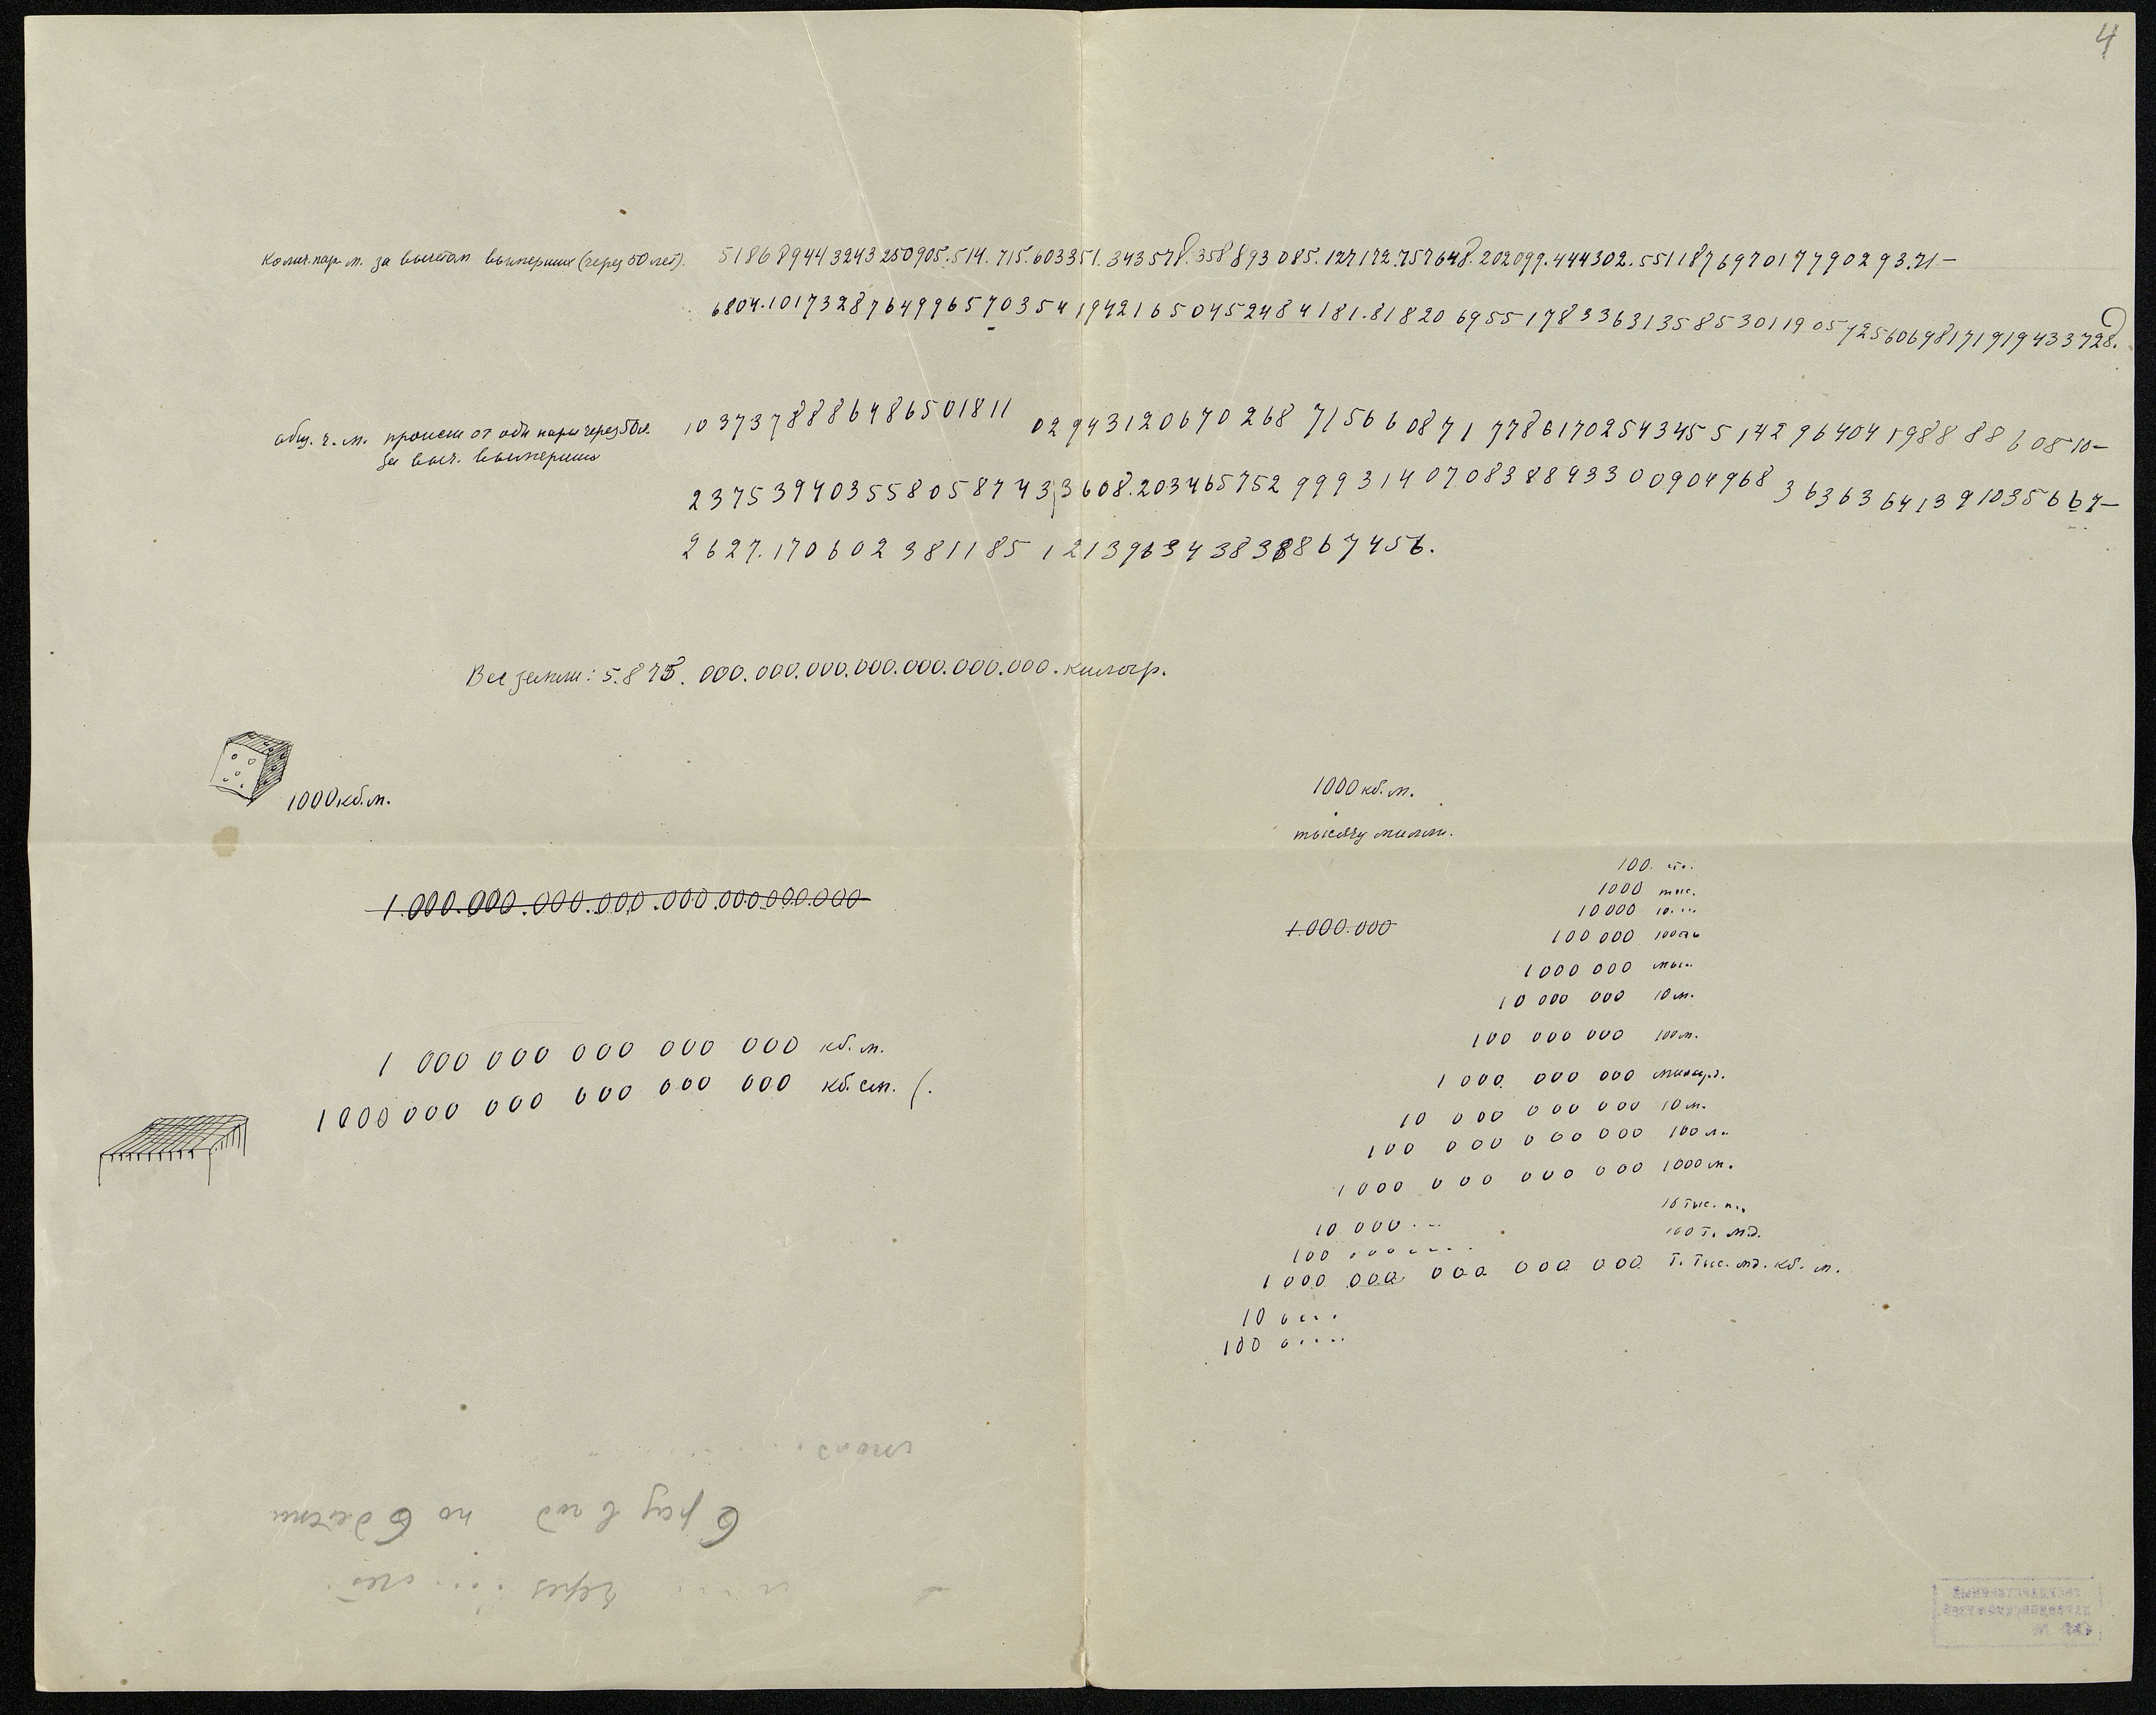 4
Колич. пар м. за вычетом вымерших (через 50 лет). 518689443243250905.514.715.603351.343578.358893085.127172.757648.202099.444302.5511876970177902 93.71—
6804.1017328764996570354194216504524 84181.81820 6955178336313585301190572560698171919433728.
общ. ч. м. происш от одн пары через 50 л. 103737888648650181 1 02943120670268 7156608717786170254345514296404198888 60810—
за выч. вымерших
2375394035580587433608.203465752 9993140708388433 00904968 3636364139103566 7—
2627.170602381185 1213963438388 67456.
Вес земли: 5.875.000.000.000.000.000.000.000.килогр.
1000 кб. м.
1000 кб. м.
тысячу милли.
100.
1000 тыс.
1.000.000.000.000.000.000.000.000
10000
1.000.000
100 000
1000 000
10 000 000 10 м.
100 000 000 100 м.
1 000 000 000 000 000 кб. м.
1 000 000 000 миллрд.
1000 000 000 000 000 000 кб. см. (.
10 000 000 000 10 м.
100 000 000 000 100 м.
1000 000 000 000 1000 м.
10 000 . -- 10 тыс. м.
100 100 т. мд.
1000 000 000 000 000 т. тыс. мд. кб. м.
10 0 . . .
100 0 . . . .
6 раз в год по 6 детей
через лет